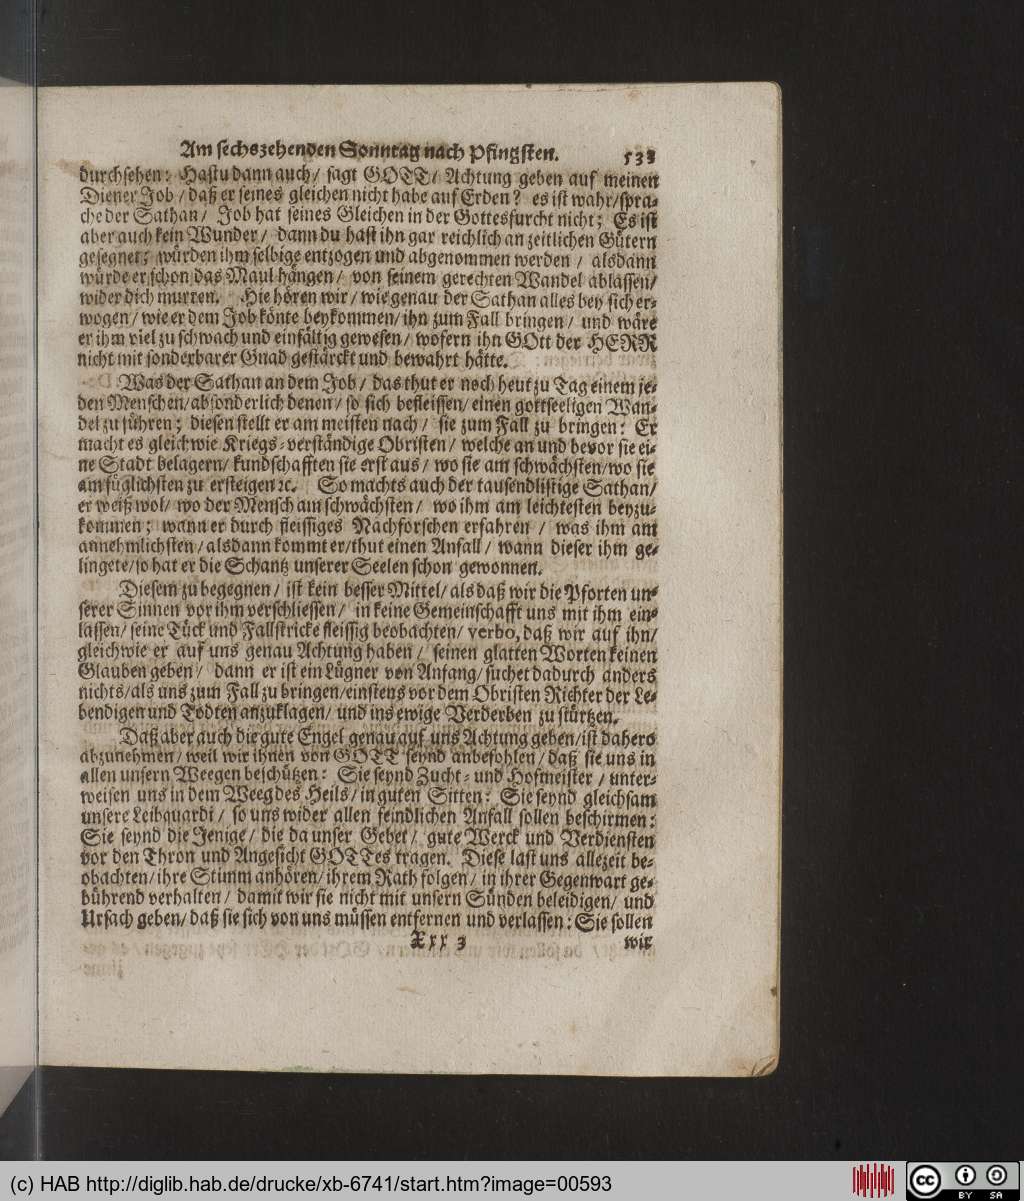 Am sechszehenden Sonntag nach Pfingsten. 533
durchsehen: Hastu dann auch/ sagt GOTT/ Achtung geben auf meinen
Diener Job/ daß er seines gleichen nicht habe auf Erden? es ist wahr/spra-
che der Sathan/ Job hat seines Gleichen in der Gottesfurcht nicht; Es ist
aber auch kein Wunder/ dann du hast ihn gar reichlich an zeitlichen Gütern
gesegnet; würden ihm selbige entzogen und abgenommen werden/ alsdann
würde er schon das Maul hängen/ von seinem gerechten Wandel ablassen/
wider dich murren. Hie hören wir/ wie genau der Sathan alles bey sich er-
wogen/ wie er dem Job könte beykommen/ihn zum Fall bringen/ und wäre
er ihm viel zu schwach und einfältig gewesen/ wofern ihn GOtt der HERR
nicht mit sonderbarer Gnad gestärckt und bewahrt hätte.
Was der Sathan an dem Job/ das thut er noch heut zu Tag einem je-
den Menschen/absonderlich denen/ so sich befleissen/ einen gottseeligen Wan-
del zu führen; diesen stellt er am meisten nach/ sie zum Fall zu bringen: Er
macht es gleichwie Kriegs-verständige Obristen/ welche an und bevor sie ei-
ne Stadt belagern/ kundschafften sie erst aus/ wo sie am schwächsten/wo sie
am füglichsten zu ersteigen ꝛc. So machts auch der tausendlistige Sathan/
er weiß wol/ wo der Mensch am schwächsten/ wo ihm am leichtesten beyzu-
kommen; wann er durch fleissiges Nachforschen erfahren/ was ihm am
annehmlichsten/alsdann kommt er/thut einen Anfall/ wann dieser ihm ge-
lingete/so hat er die Schantz unserer Seelen schon gewonnen.
Diesem zu begegnen/ ist kein besser Mittel/ als daß wir die Pforten un-
serer Sinnen vor ihm verschliessen/ in keine Gemeinschafft uns mit ihm ein-
lassen/ seine Tück und Fallstricke fleissig beobachten/ verbo, daß wir auf ihn/
gleichwie er auf uns genau Achtung haben/ seinen glatten Worten keinen
Glauben geben/ dann er ist ein Lügner von Anfang/suchet dadurch anders
nichts/als uns zum Fall zu bringen/einstens vor dem Obristen Richter der Le-
bendigen und Todten anzuklagen/ und ins ewige Verderben zu stürtzen.
Daß aber auch die gute Engel genau auf uns Achtung geben/ist dahero
abzunehmen/ weil wir ihnen von GOTT seynd anbefohlen/ daß sie uns in
allen unsern Weegen beschützen: Sie seynd Zucht- und Hofmeister/ unter-
weisen uns in dem Weeg des Heils/ in guten Sitten: Sie seynd gleichsam
unsere Leibquardi/ so uns wider allen feindlichen Anfall sollen beschirmen:
Sie seynd die Jenige/ die da unser Gebet/ gute Werck und Verdiensten
vor den Thron und Angesicht GOTTes tragen. Diese last uns allezeit be-
obachten/ihre Stimm anhören/ihrem Rath folgen/ in ihrer Gegenwart ge-
bührend verhalten/ damit wir sie nicht mit unsern Sünden beleidigen/ und
Ursach geben/ daß sie sich von uns müssen entfernen und verlassen: Sie sollen
Xxx 3 wir
(c) HAB http://diglib.hab.de/drucke/xb-6741/start.htm?image=00593
cc BY SA